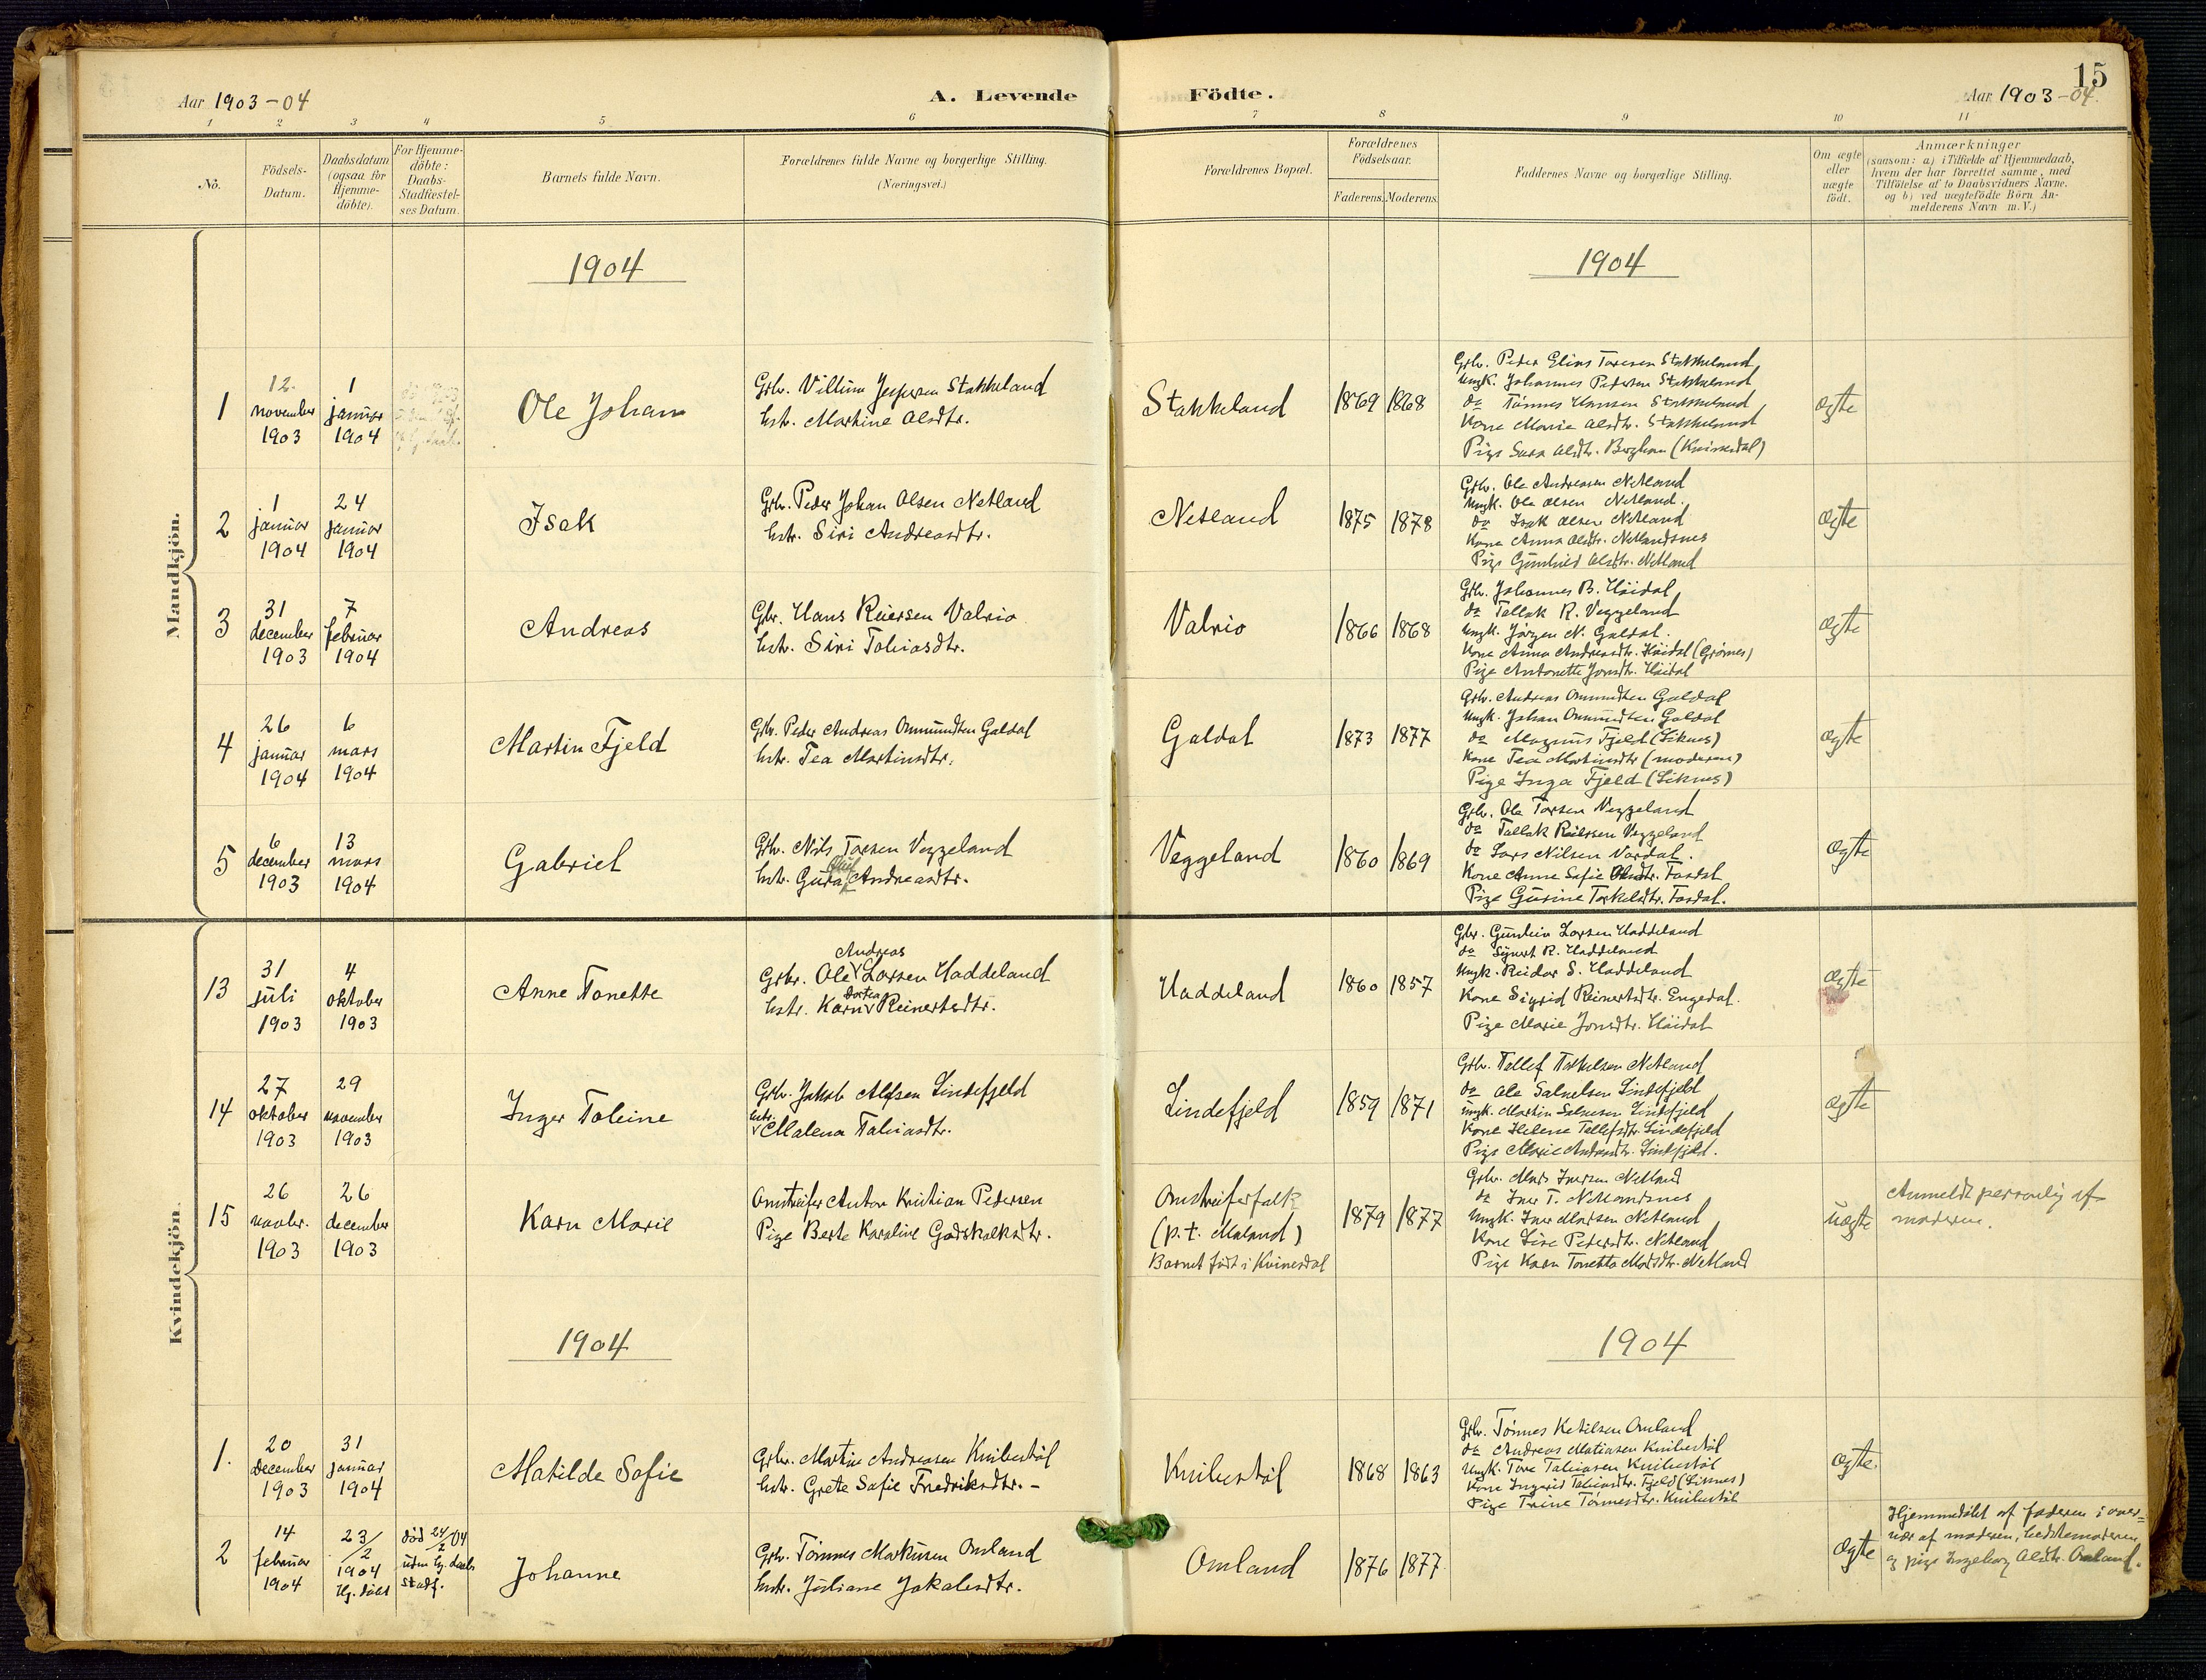 Aar 1903-04
A. Levende
Födte.
15
Aar 1903-04.
1 2 3 4 5 6 7 8 9 10 11
No.
Födsels-
Datum.
Daabsdatum
(ogsaa for
Hjemme-
döbte).
For Hjemme-
döbte:
Daabs-
Stadfæstel-
ses Datum.
Barnets fulde Navn.
Forældrenes fulde Navne og borgerlige Stilling.
(Næringsvei.)
Forældrenes Bopæl.
Forældrenes
Födselsaar.
Faderens. Moderens.
Faddernes Navne og borgerlige Stilling.
Om ægte
eller
uægte
födt.
Anmærkninger
(saasom: a) i Tilfælde af Hjemmedaab,
hvem der har forrettet samme, med
Tilföielse af to Daabsvidners Navne.
og b) ved uægtefödte Börn An-
melderens Navn m.V.)
Mandkjön.
1904
1904
1
12.
november
1903
1
januar
1904
Ole Johan
Gbr. Villum Jespersen Stakkeland
hstr. Martine Olsdtr.
Stakkeland
1869 1868
Gbr. Peder Elias Taresen Stakkeland
Ungk. Johannes Pedersen Stakkeland
do Tønnes Hansen Stakkeland
Kone Marie Olsdtr. Stakkeland
Pige Sara Olsdtr. (Kvinesdal)
ægte
2
1
januar
1904
24
januar
1904
Isak
Gbr. Peder Johan Olsen Netland
hstr. Siri Andreasdtr.
Netland
1875 1878
Gbr. Ole Andreasen Netland
Ungk. Ole Olsen Netland.
do Isak Olsen Netland
Kone Anna Olsdtr. Netlandsnes
Pige Gunhild Olsdtr. Netland
ægte
3
31
december
1903
7
februar
1904
Andreas
Gbr. Hans Reiersen Valrio
hstr. Siri Tobiasdtr.
Valrio
1866 1868
Gbr. Johannes B. Höidal
do Tallak R. Veggeland
Ungk. Jörgen N. Galdal.
Kone Anna Andreasdtr. Höidal (Gjömes)
Pige Antonette Jonsdtr. Höidal
ægte
4
26
januar
1904
6
mars
1904
Martin Fjeld
Gbr. Peder Andreas Ommundsen Galdal
hstr. Tea Martinsdtr.
Galdal
1873 1877
Gbr. Andreas Ommundsen Galdal
Ungk. Johan Ommundsen Galdal
do Magnus Fjeld (Liknes)
Kone Tea Martinsdtr (moderen)
Pige Inga Fjeld (Liknes)
ægte
5
6
december
1903
13
mars
1904
Gabriel
Gbr. Nils Tarsen Veggeland
hstr. Andreasdtr.
Veggeland
1860 1869
Gbr. Ole Tarsen Veggeland
do Tallak Reiersen Veggeland
do Lars Nilsen Vordal.
Kone Anne Sofie Fosdal
Pige Gurine Torkelsdtr. Fosdal.
ægte
Kvindekjön.
13
31
juli
1903
4
oktober
1903
Anne Tonette
Andreas
Gbr. Ole Larsen Haddeland
Dortea
hstr. Karn Reinertsdtr.
Haddeland
1860 1857
Gbr. Gunlein Larsen Haddeland
do Sigvart R. Haddeland
Ungk. Reidar S. Haddeland
Kone Sigrid Reinertsdtr. Engedal.
Pige Marie Jonsdtr. Höidal
ægte
14
27
oktober
1903
29
november
1903
Inger Toleine
Gbr. Jakob Alfsen Lindefjeld
hstr.
Malena Tobiasdtr.
Lindefjeld
1859 1871
Gbr. Tallef Torkelsen Netland
do Ole Salvelsen Lindefjeld
Ungk. Martin Salvesen Lindefjeld
Kone Helene Tallefsdtr. Lindefjeld
Pige Marie Lindefjeld.
ægte
15
26
novbr.
1903
26
december
1903
Karn Marie
Omstreifer Anton Kristian Pedersen
Pige Berte Karoline Godskalksdtr.
Omstreiferfolk
(p.t. Maland)
Barnet födt i Kvinesdal
1879 1877
Gbr. Mads Iversen Netland
do Iver T. Netlandsnes
Ungk. Iver Madsen Netland
Kone Lise Pedersdtr. Netland
Pige Karn Tonetta Madsdtr. Netland
uægte
Anmeldt personlig af
moderen.
1904
1904
1.
20
december
1903
31
januar
1904
Matilde Sofie
Gbr. Martin Andreasen Knibestöl
hstr. Grete Sofie Fredriksdtr. -
Knibestöl
1868 1863
Gbr. Tönnes Ketilsen Omland
do Andreas Matiasen Knibestöl
Ungk. Tore Tobiasen Knibestöl
Kone Ingerid Tobiasdtr. Fjeld (Liknes)
Pige Trine Tönnesdtr. Knibestöl
ægte.
2
14
februar
1904
23/
2
1904
Hj. döbt
död 24/2 04
uden Hj. daabs
stadf.
Johanne
Gbr. Tönnes Markusen Omland
hstr. Juliane Jakobsdtr.
Omland
1876 1877
ægte
Hjemmedöbt af faderen i over-
vær af moderen, bedstemoderen
og pige Ingeborg Olsdtr. Omland.